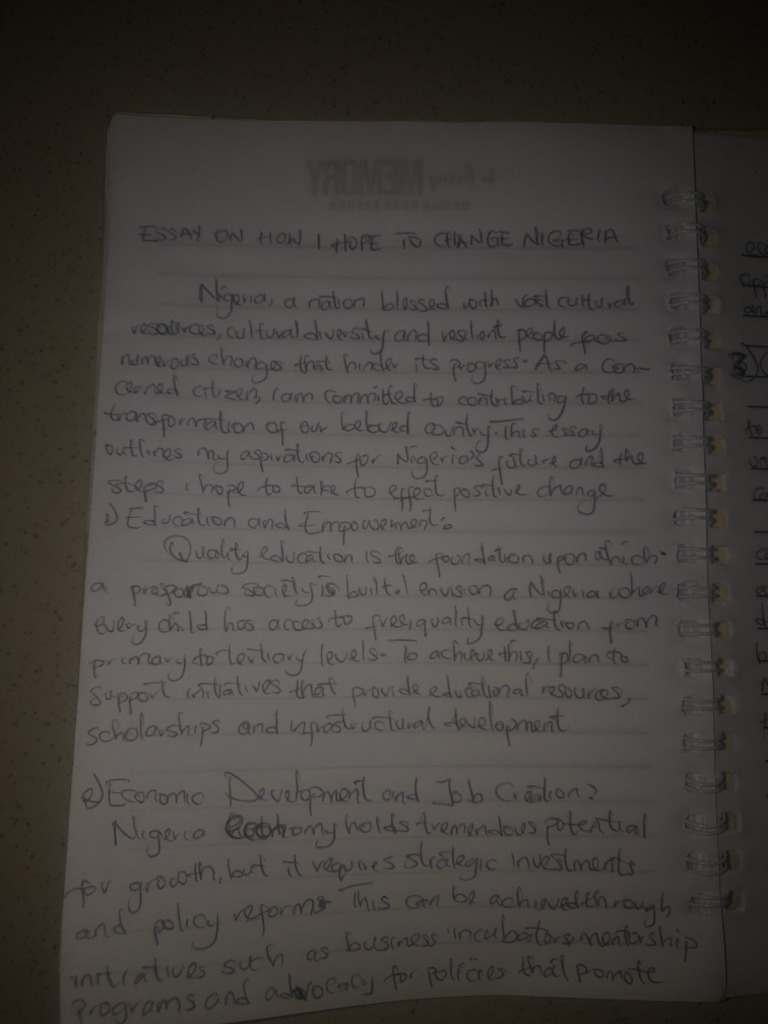 In loving MEMORY
OF OUR DEAR FATHER
ESSAY ON HOW I HOPE TO CHANGE NIGERIA
Nigeria, a nation blessed with vast cultural
resources, cultural diversity and reselient people, faces
numerous changes that hinder its progress. As a con-
cerned citizen, I am committed to contributing to the
transformation of our beloved country. This essay
outlines my aspirations for Nigeria's future and the
steps i hope to take to effect positive change
1) Education and Empowerment:
Quality education is the foundation upon which
a prosparous society is built. I envision a Nigeria where
every child has access to free, quality education from
primary to tertiary levels. To achieve this, I plan to
support initiatives that provide educational resources,
scholarships and infrastructural development
2) Economic Development and Job Creation:
Nigeria economy holds tremendous potential
for growth, but it requires strategic investments
and policy reforms. This can be achieved through
initiatives such as business incubators, mentorship
programs and advocacy for policies that promote
3)
to